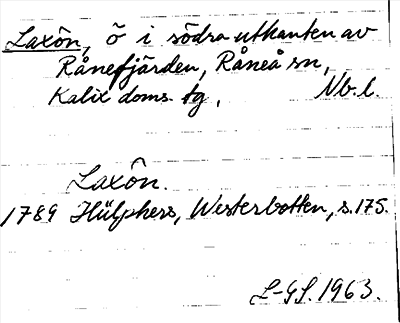 Laxön, ö i södra utkanten av
Rånefjärden, Råneå sn,
Kalix doms. tg, Nb. l.
Laxôn.
1789 Hülphers, Westerbotten, s. 175.
L-GS. 1963.